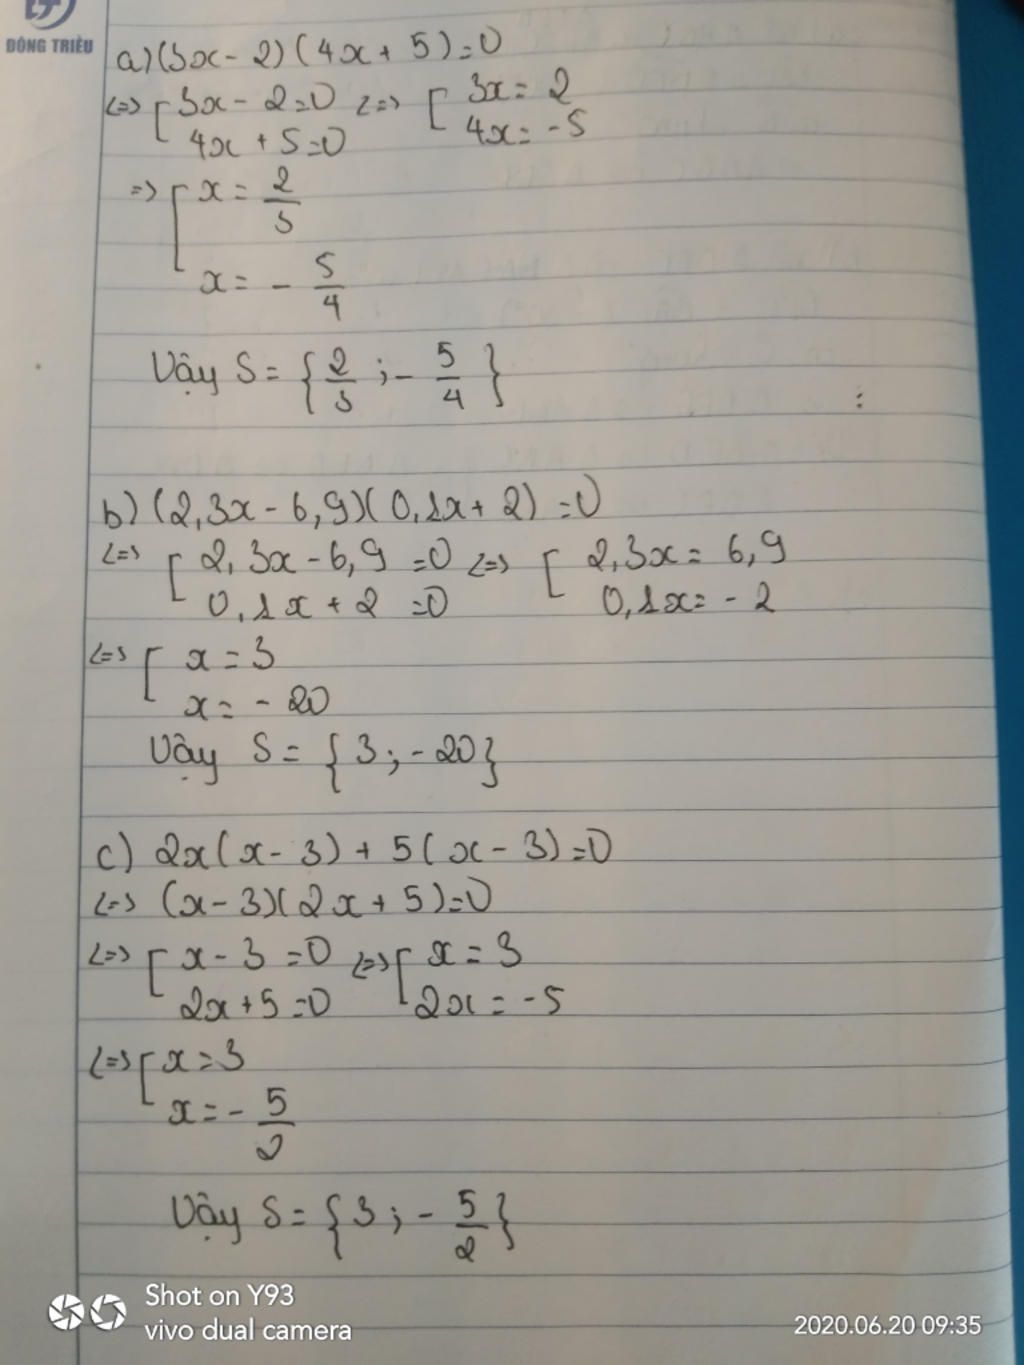 ĐÔNG TRIỀU
a) (3x - 2)(4x + 5) = 0
<=> [ 3x - 2 = 0 <=> [ 3x = 2
4x + 5 = 0 4x = -5
=> [ x = 2/3
x = - 5/4
Vậy S = { 2/3 ; - 5/4 }
b) (2,3x - 6,9)(0,1x + 2) = 0
<=> [ 2,3x - 6,9 = 0 <=> [ 2,3x = 6,9
0,1x + 2 = 0 0,1x = - 2
<=> [ x = 3
x = - 20
Vậy S = { 3 ; - 20 }
c) 2x(x - 3) + 5(x - 3) = 0
<=> (x - 3)(2x + 5) = 0
<=> [ x - 3 = 0 <=> [ x = 3
2x + 5 = 0 2x = -5
<=> [ x = 3
x = - 5/2
Vậy S = { 3 ; - 5/2 }
Shot on Y93
vivo dual camera
2020.06.20 09:35